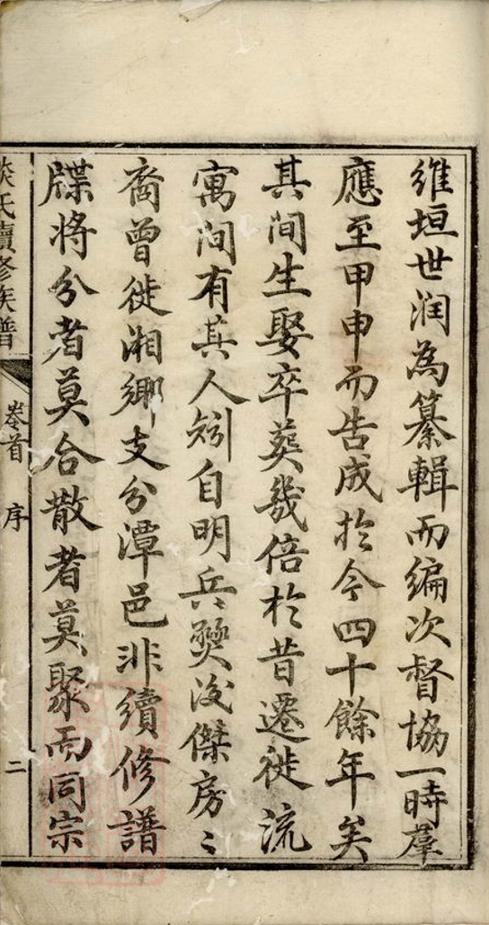 維垣世润為纂輯而編次督協一時羣
應至甲申而告成於今四十餘年矣
其间生娶卒葬幾倍於昔遷徙流
寓间有其人矧自明兵燹後傑房〻
裔曾徙湘鄉支分潭邑非續修譜
牒将分者莫合散者莫聚而同宗
氏續修族譜
卷首
序
二